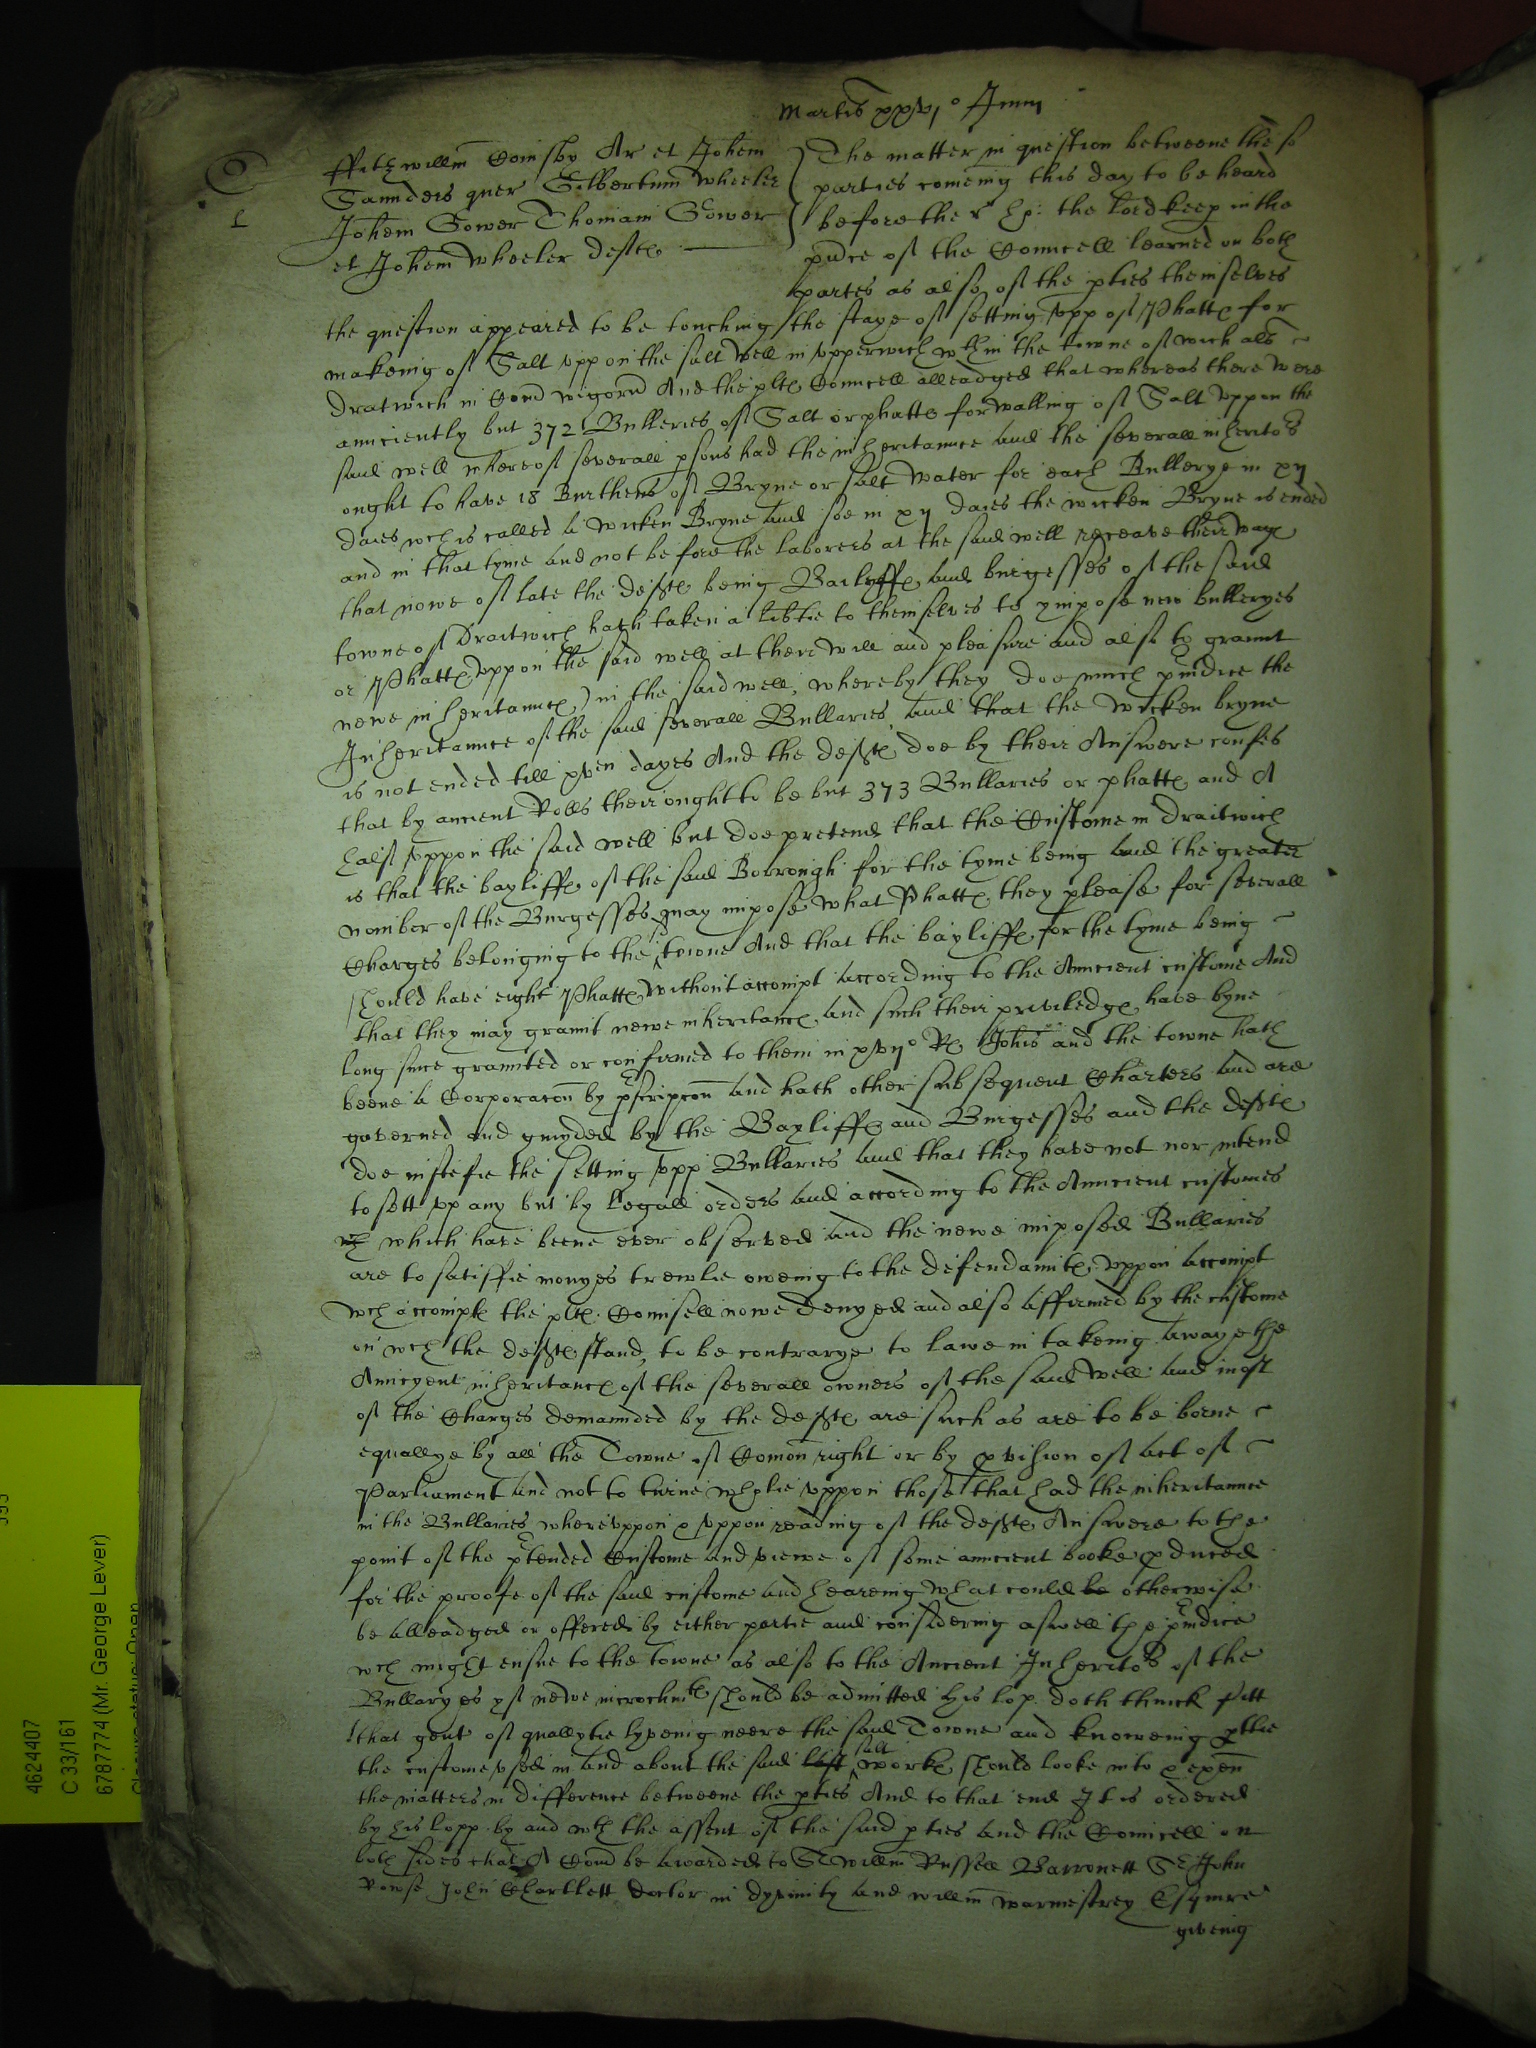 Martis xxvj° Junij
ffitzwillm Conisby Ar et Johem
Saunders quer Gilbertum wheeler
Johem Gower Thomam Gower
et Johem wheeler defte
L
The matter in question betweene the
parties comeing this day to be heard
before the r Lp: the Lord keep in the
pnce of the Councell learned on both
partes as also of the pties themselves
the question appeared to be touching the staye of setting vpp of Phatte for
makeing of Salt vppon the salt well in vpperwich wthin the towne of wich als
Draitwich in Com wigorn And the plte Councell alleadged that whereas there were
aunciently but 372 Bulleries of Salt or phatte for walling of Salt vppon the
said well whereof severall psons had the inheritaunce and the severall inheritors
ought to have 18 Burthens of Bryne or salt water for each Bullerye in xij
daies wch is called a wicken Bryne and soe in xij daies the wicken Bryne is ended
and in that tyme and not before the laborers at the said well receave their waye
that nowe of late the defte being Bayliffe and burgesses of the said
towne of Draitwich hath taken a libtie to themselves to ympose new bulleryes
or Phatte vppon the said well at their will and pleasure and also to graunt
newe inheritaunce in the said well, whereby they doe much piudice the
Inheritaunce of the said severall Bullaries and that the wicken bryne
is not ended till xven dayes And the defte doe by their Answere confes
that by ancient Rolls their ought to be but 373 Bullaries or phatte and A
halfe vppon the said well but doe pretend that the Custome in Draitwich
is that the bayliffe of the said Borrough for the tyme being and the greater
nomber of the Burgesses may impose what Phatte they please for severall
Charges belonging to the towne And that the bayliffe for the tyme being
should have eight Phatte without accompt according to the Auncient custome And
that they may graunt newe inheritance and such their priviledge have byne
long since graunted or confirmed to them in xvij° Re Johis and the towne hath
beene a Corporacon by pscripcon and hath other subsequent Charters and are
governed and guyded by the Bayliffe and Burgesses and the defte
doe iustefie the setting vpp Bullaries and that they have not nor intend
to sett vp any but by legall orders and according to the Auncient customes
which have beene ever observed and the newe imposed Bullaries
are to satisfie monyes trewlie oweing to the defendaunte vppon accompt
wch accompte the plte Counsell nowe denyed and also affirmed by the custome
on wch the defte stand, to be contrarye to lawe in takeing awaye the
Auncyent inheritance of the severall owners of the said well and most
of the Charges demaunded by the defte are such as are to be borne
equallye by all the Towne of Comon right or by pvision of act of
Parliament and not to turne whplie vppon those that had the inheritaunce
in the Bullaries wherevppon vppon reading of the defte Answere to the
point of the ptended Custome and viewe of some auncient booke pduced
for the proofe of the said custome and heareing what could be otherwise
be alleadged or offered by either partie and considering aswell the piudice
wch might ensue to the towne as also to the Ancient Inheritors of the
Bullaryes yf newe incrochmte should be admitted his lop. doth thinck fitt
that gent of quallytie lyveing neere the said Towne and knoweing ptlie
the custome vsed in and about the said last salt worke should looke into & exen
the matters in difference betweene the pties And to that end It is ordered
by his lopp by and wth the assent of the said pties and the Councell on
both sides that A Com be awarded to Sr Willm Russell Barronett Sr John
Rowse John Charllett doctor in dyvinity and willm warmestrey Esquire
giveing
4624407
C 33/161
6787774 (Mr. George Lever)